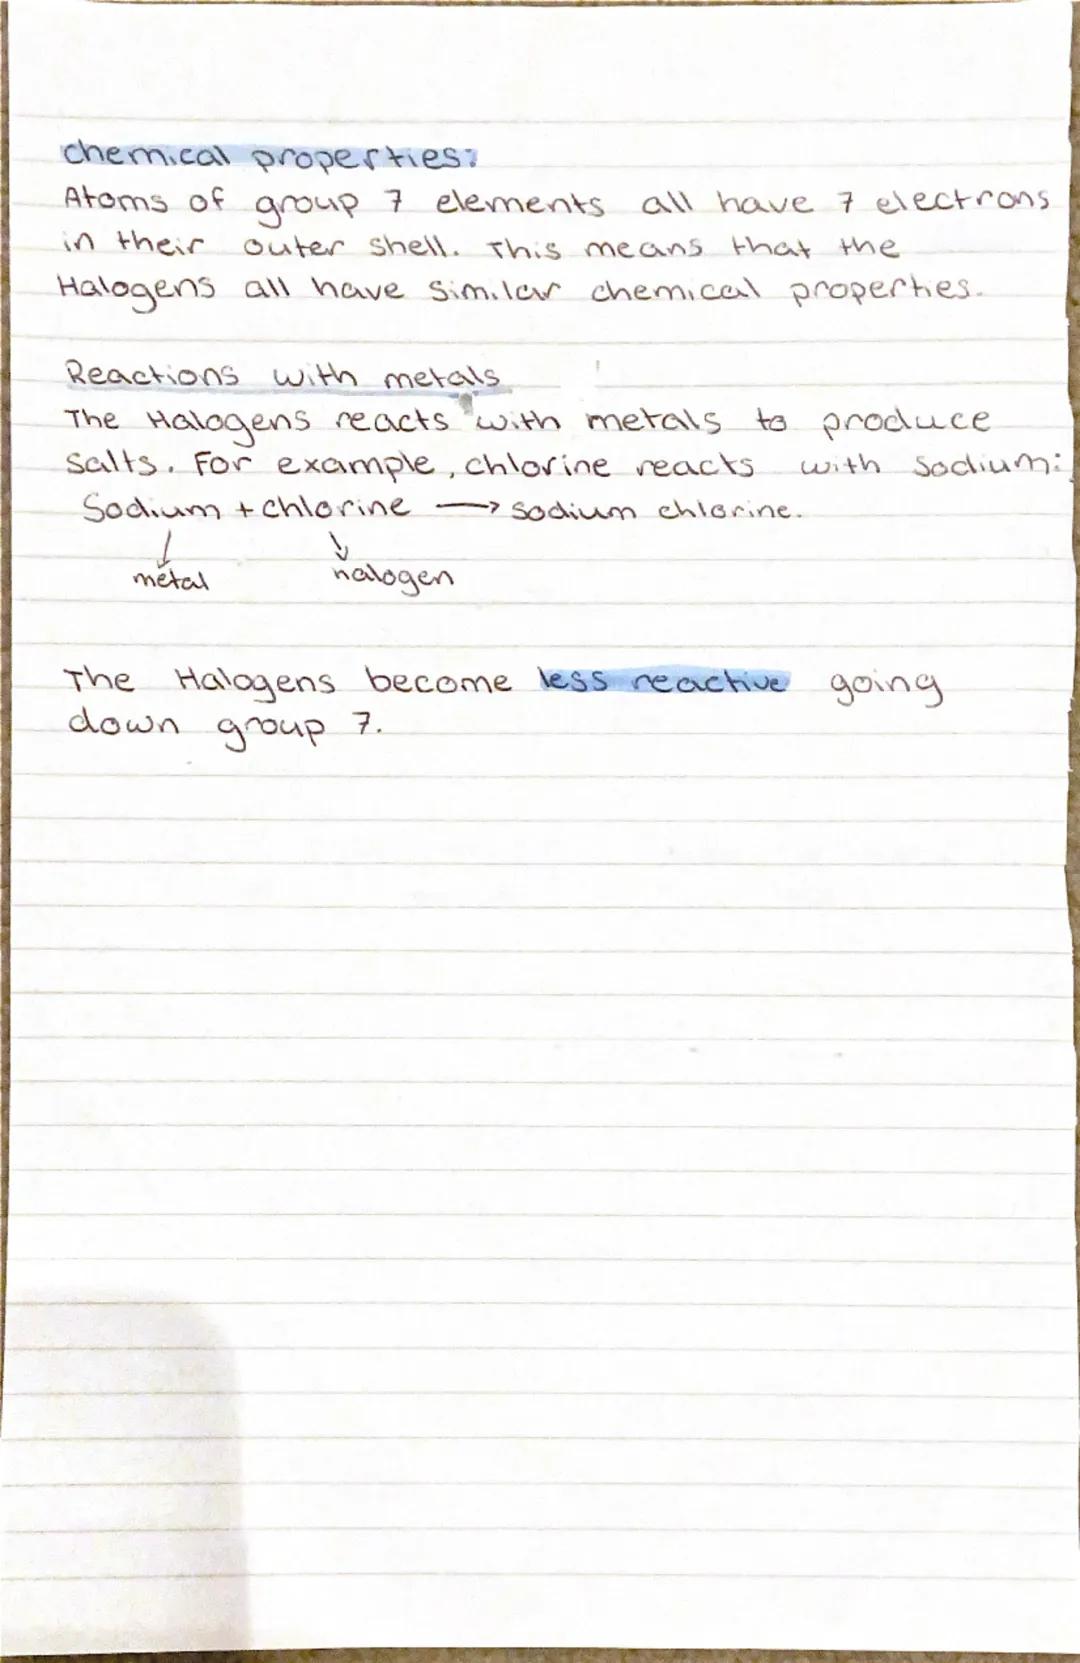 chemical properties:
Atoms of group 7 elements all have 7 electrons
in their outer shell. This means that the
Halogens all have similar chemical properties.
Reactions with metals
The Halogens reacts with metals to produce
salts. For example, chlorine reacts with sodium:
Sodium + chlorine → sodium chlorine.
metal halogen
The Halogens become less reactive going
down group 7.